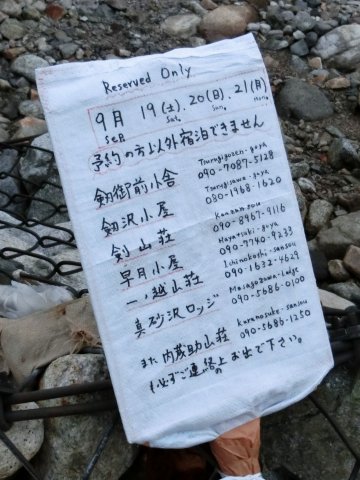 Reserved Only
9月 19(土). 20(日) 21(月)
Sep Sat. Sun. Mon.
予約の方以外宿泊できません
Tsurugigozen-goya
剱御前小舎 090-7087-5128
Tsurugisawa-goya
剱沢小屋 080-1968-1620
Kenzansou
剣山荘 090-8967-9116
Hayatsuki-goya
早月小屋 090-7740-9233
Ichinokoshi-sansou
一ノ越山荘 090-1632-4629
Masagozawa-Lodge
真砂沢ロッジ 090-5686-0100
Kuranosuke-sansou
また、内蔵助山荘 090-5686-1250
は必ずご連絡の上お出で下さい。